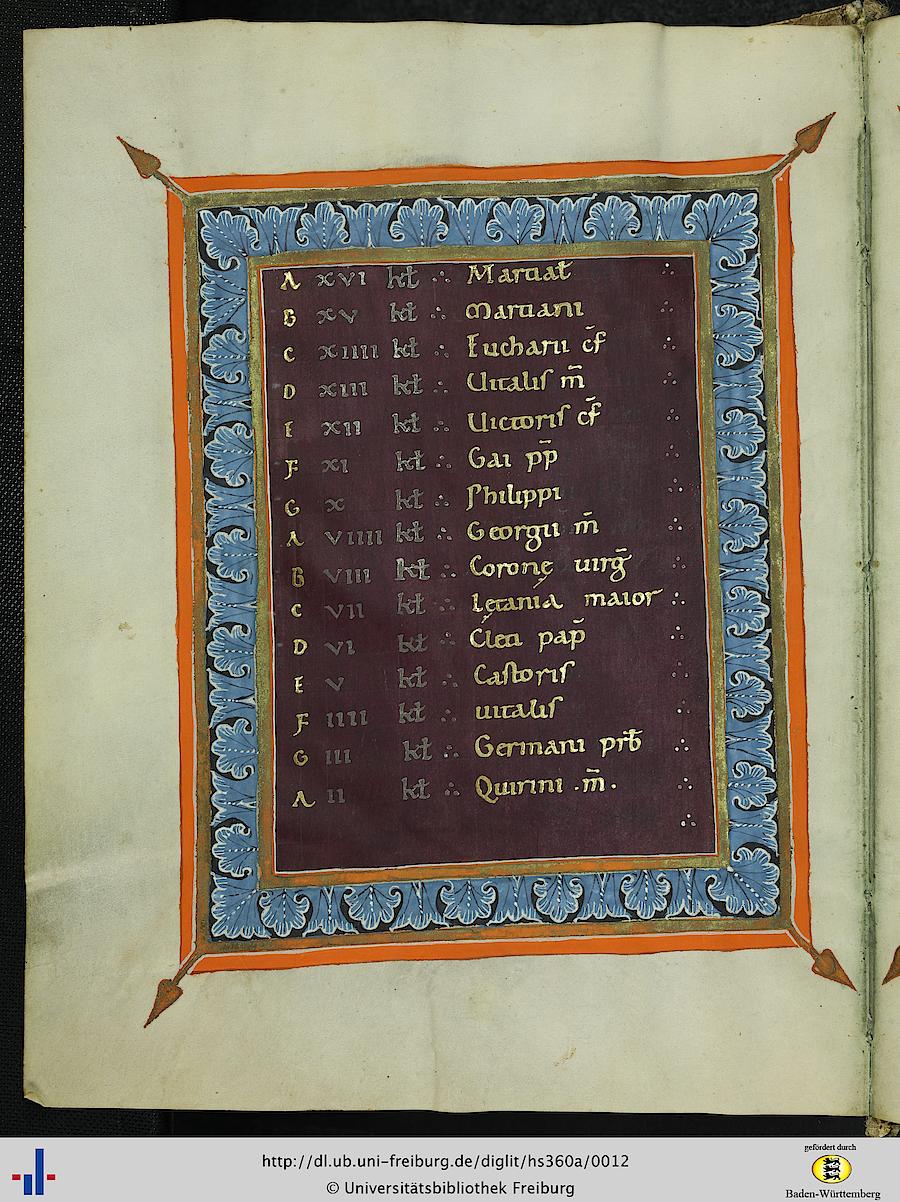 A XVI kł ∴ Marciał
B XV kł ∴ Marciani
C XIIII kł ∴ Eucharii c̄f
D XIII kł ∴ Uitalis m̄
E XII kł ∴ Uictoris c̄f
F XI kł ∴ Gai pp̄
G X kł ∴ Philippi
A VIIII kł ∴ Georgii m̄
B VIII kł ∴ Coronę uirḡ
C VII kł ∴ Lętania maior
D VI kł ∴ Cleti pap̄
E V kł ∴ Castoris
F IIII kł ∴ uitalis
G III kł ∴ Germani prb̄
A II kł ∴ Quirini .m̄.
http://dl.ub.uni-freiburg.de/diglit/hs360a/0012
© Universitätsbibliothek Freiburg
gefördert durch
Baden-Württemberg